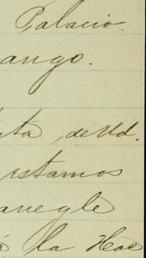 Palacio.
ango.
ta de Ud.
estamos
aregle
á la Hac